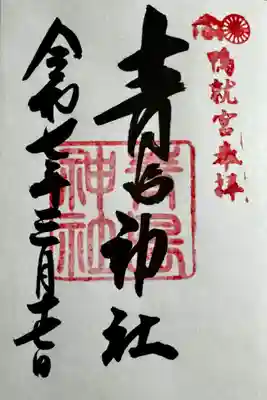 鴨就宮奉拝
青島神社
青島
神社
令和七年三月十七日